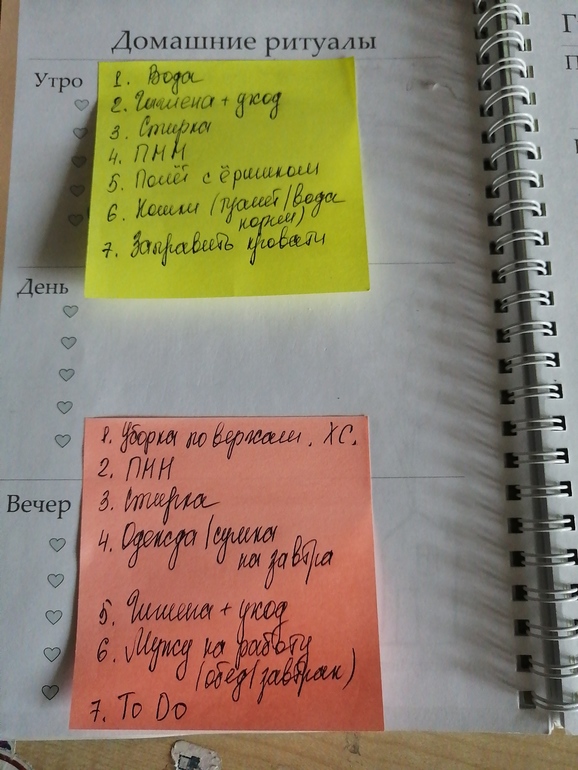 Домашние ритуалы
Утро
1. Вода
2. Гигиена + уход
3. Стирка
4. ПММ
5. Полёт с ёршиком
6. Кошки (туалет/вода
корм)
7. Заправить кровати
День
1. Уборка по верхам. ХС.
2. ПММ
3. Стирка
Вечер
4. Одежда/сумка
на завтра
5. Гигиена + уход
6. Мужу на работу
(обед/завтрак)
7. To Do
Г